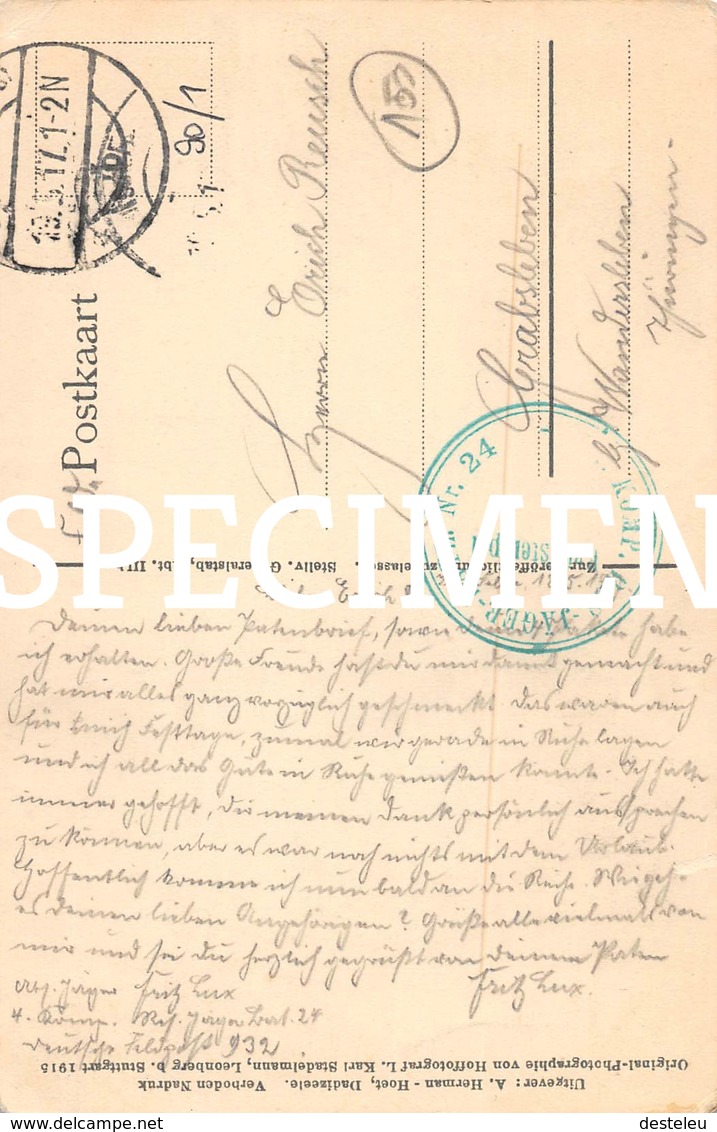 Postkaart
13.5.17.1-2N
90/1
155
Herrn Erich Reusch
Grabsleben
b/ Wandersleben
Thüringen.
Nr. 24
KOMP. RES.-JÄGER-
Zur Veröffentlichung zugelassen. Stellv. Generalstab, Abt. III b
SPECIMEN
Deinen lieben Patenbrief, sowie habe
ich erhalten. Große Freude hast du mir damit gemacht und
hat mir alles ganz vorzüglich geschmeckt. Das waren auch
für mich Festtage, zumal wir gerade in Ruhe lagen
und ich all das Gute in Ruhe genießen konnte. Ich hatte
immer gehofft, Dir meinen Dank persönlich aussprechen
zu können, aber es war noch nichts mit dem Urlaub.
Hoffentlich komme ich nun bald an die Reihe. Wie geht
es deinen lieben Angehörigen? Grüße alle vielmals von
mir und sei du herzlich gegrüßt von deinem Paten
Fritz Lux.
Abs. Jäger Fritz Lux
4. Komp. Res. Jäger Bat. 24
Deutsche Feldpost 932
Uitgever: A. Herman-Hoet, Dadizeele. Verboden Nadruk
Original-Photographie von Hoffotograf L. Karl Stadelmann, Leonberg b. Stuttgart 1915
desteleu
delcampe.net